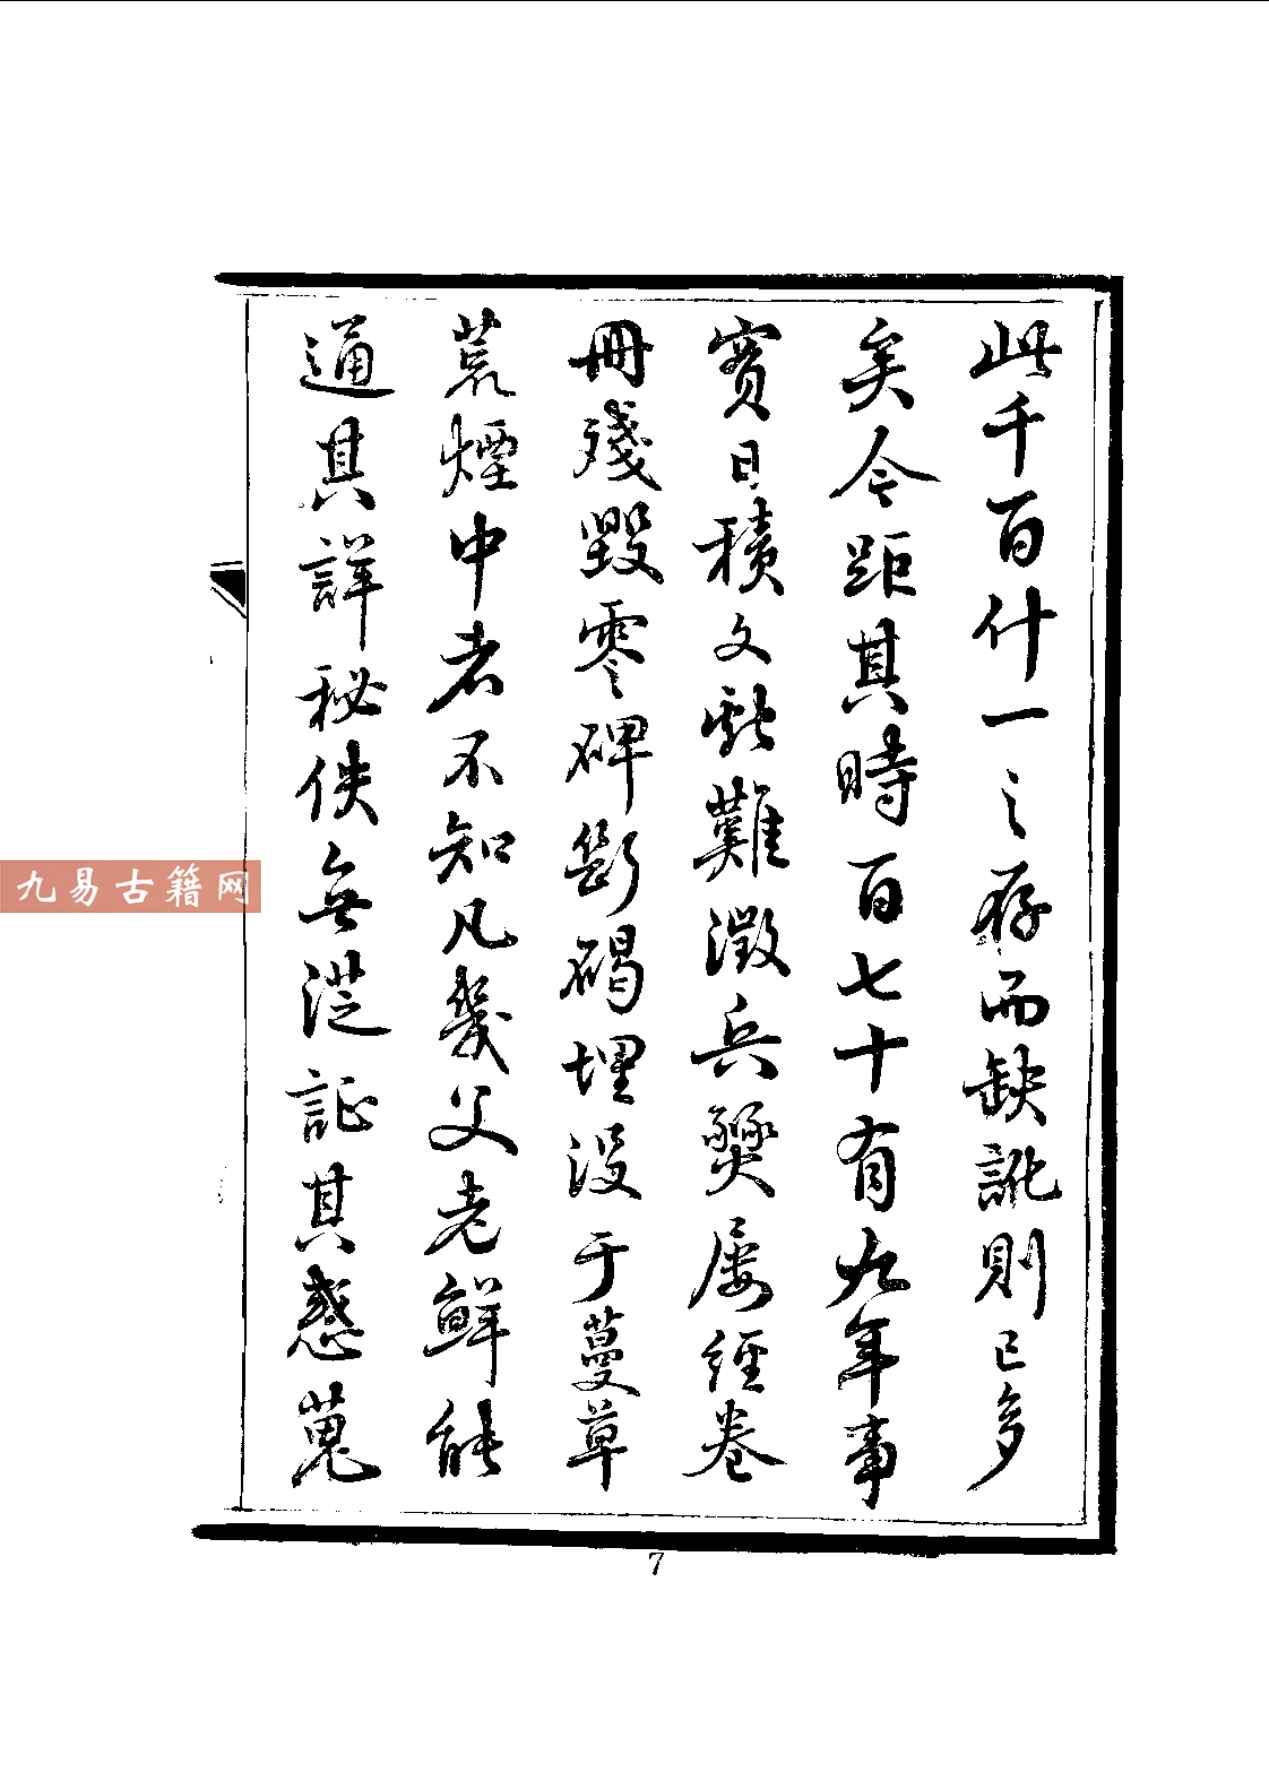 此千百什一之存而缺訛則已多
矣今距其時百七十有九年事
實日積文獻難徵兵燹屢經卷
冊殘毀零碑斷碣埋没于蔓草
荒煙中者不知凡幾父老鮮能
通其詳秘佚無從証其惑蒐
九易古籍网
7